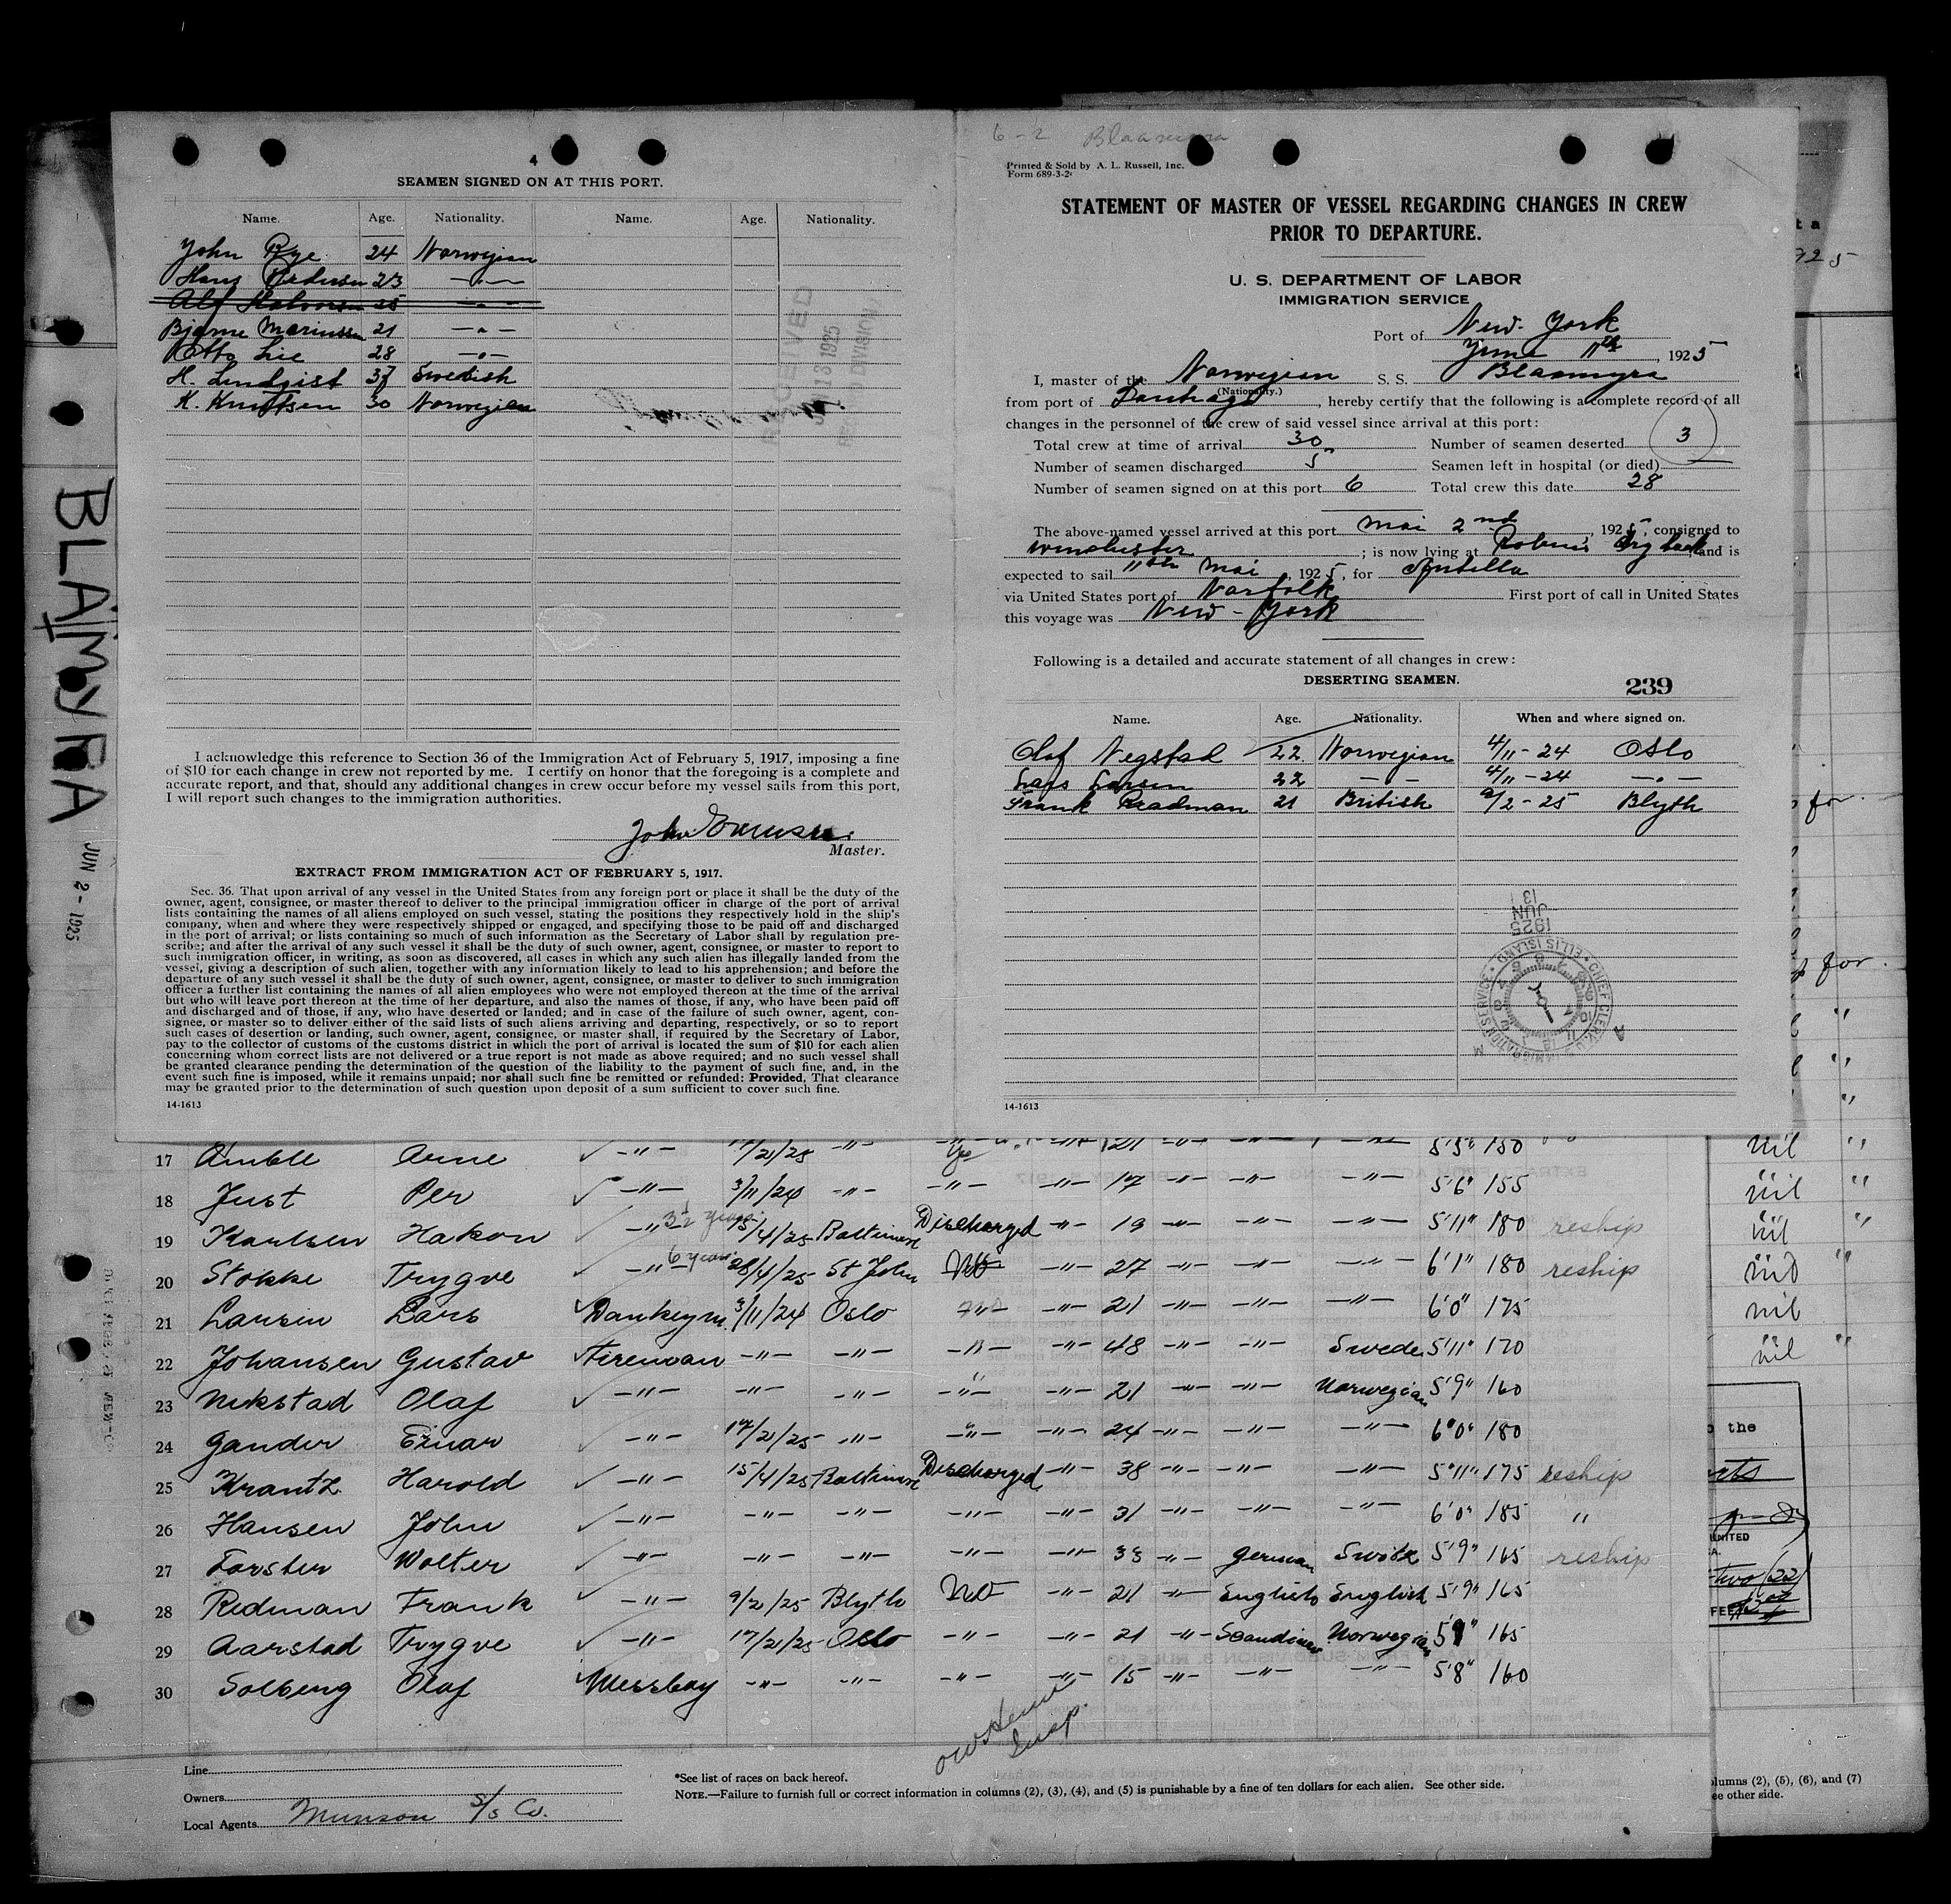 4
SEAMEN SIGNED ON AT THIS PORT.
Name. Age. Nationality. Name. Age. Nationality.
John Rye 24 Norwegian
Hans Pedersen 23 —"—
Alf Halvorsen 25 —"—
Bjarne Mariussen 21 —"—
Otto Lie 28 —"—
H. Lundqist 37 Swedish
K. Knuttsen 30 Norwegian
RECEIVED
13 1925
DIVISION
I acknowledge this reference to Section 36 of the Immigration Act of February 5, 1917, imposing a fine
of $10 for each change in crew not reported by me. I certify on honor that the foregoing is a complete and
accurate report, and that, should any additional changes in crew occur before my vessel sails from this port,
I will report such changes to the immigration authorities.
John
Master.
EXTRACT FROM IMMIGRATION ACT OF FEBRUARY 5, 1917.
Sec. 36. That upon arrival of any vessel in the United States from any foreign port or place it shall be the duty of the
owner, agent, consignee, or master thereof to deliver to the principal immigration officer in charge of the port of arrival
lists containing the names of all aliens employed on such vessel, stating the positions they respectively hold in the ship's
company, when and where they were respectively shipped or engaged, and specifying those to be paid off and discharged
in the port of arrival; or lists containing so much of such information as the Secretary of Labor shall by regulation pre-
scribe; and after the arrival of any such vessel it shall be the duty of such owner, agent, consignee, or master to report to
such immigration officer, in writing, as soon as discovered, all cases in which any such alien has illegally landed from the
vessel, giving a description of such alien, together with any information likely to lead to his apprehension; and before the
departure of any such vessel it shall be the duty of such owner, agent, consignee, or master to deliver to such immigration
officer a further list containing the names of all alien employees who were not employed thereon at the time of the arrival
but who will leave port thereon at the time of her departure, and also the names of those, if any, who have been paid off
and discharged and of those, if any, who have deserted or landed; and in case of the failure of such owner, agent, con-
signee, or master so to deliver either of the said lists of such aliens arriving and departing, respectively, or so to report
such cases of desertion or landing, such owner, agent, consignee, or master shall, if required by the Secretary of Labor,
pay to the collector of customs of the customs district in which the port of arrival is located the sum of $10 for each alien
concerning whom correct lists are not delivered or a true report is not made as above required; and no such vessel shall
be granted clearance pending the determination of the question of the liability to the payment of such fine, and, in the
event such fine is imposed, while it remains unpaid; nor shall such fine be remitted or refunded: Provided, That clearance
may be granted prior to the determination of such question upon deposit of a sum sufficient to cover such fine.
14-1613
6-2 Blaamyra
Printed & Sold by A. L. Russell, Inc.
Form 689-3-2
STATEMENT OF MASTER OF VESSEL REGARDING CHANGES IN CREW
PRIOR TO DEPARTURE.
U. S. DEPARTMENT OF LABOR
IMMIGRATION SERVICE
Port of New-York
June 11th, 1925
I, master of the Norwegian S. S. Blaamyra
(Nationality.)
from port of Santiago, hereby certify that the following is a complete record of all
changes in the personnel of the crew of said vessel since arrival at this port:
Total crew at time of arrival 30 Number of seamen deserted 3
Number of seamen discharged 5 Seamen left in hospital (or died) —
Number of seamen signed on at this port 6 Total crew this date 28
The above-named vessel arrived at this port mai 2nd, 1925, consigned to
Winchester; is now lying at Robins dry dock and is
expected to sail 11th mai, 1925, for Antilla
via United States port of Norfolk First port of call in United States
this voyage was New-York
Following is a detailed and accurate statement of all changes in crew:
DESERTING SEAMEN.
239
Name. Age. Nationality. When and where signed on.
Olaf Negstad 22 Norwegian 4/11-24 Oslo
Lars Larsen 22 —"— 4/11-24 —"—
Frank Readman 21 British 9/2-25 Blyth
JUN 13 1925
CHIEF CLERK U.S. IMMIGRATION SERVICE ELLIS ISLAND
14-1613
BLAAMYRA
JUN 2 - 1925
17 Amble Arne —"— 17/2/25 —"— yes —"— 21 —"— —"— —"— 5'5" 150 nil "
18 Just Per —"— 3/11/24 —"— —"— —"— 17 —"— —"— —"— 5'6" 155 nil "
19 Karlsen Hakon —"— 3½ years 15/4/25 Baltimore Discharged —"— 19 —"— —"— —"— 5'11" 180 reship nil "
20 Stokke Trygve —"— 6 years 28/4/25 St John No —"— 27 —"— —"— —"— 6'1" 180 reship nil "
21 Larsen Lars Donkeym. 3/11/24 Oslo —"— —"— 21 —"— —"— —"— 6'0" 175 nil
22 Johansen Gustav Fireman —"— —"— —"— —"— 48 —"— —"— Swede 5'11" 170 nil "
23 Nekstad Olaf —"— —"— —"— —"— —"— 21 —"— —"— Norwegian 5'9" 160
24 Gander Einar —"— 17/2/25 —"— —"— —"— 24 —"— —"— —"— 6'0" 180
25 Krantz Harold —"— 15/4/25 Baltimore Discharged —"— 38 —"— —"— —"— 5'11" 175 reship
26 Hansen John —"— —"— —"— —"— —"— 31 —"— —"— —"— 6'0" 185 "
27 Forster Wolter —"— —"— —"— —"— —"— 33 —"— German Switz 5'9" 165 reship
28 Redman Frank —"— 9/2/25 Blyth No —"— 21 —"— English English 5'9" 165
29 Aarstad Trygve —"— 17/2/25 Oslo —"— —"— 21 —"— Scandinav Norwegian 5'9" 165
30 Solberg Olaf Messboy —"— —"— —"— —"— 15 —"— —"— —"— 5'8" 160
Insp.
Line
Owners
Local Agents Munson S/S Co.
*See list of races on back hereof.
NOTE.—Failure to furnish full or correct information in columns (2), (3), (4), and (5) is punishable by a fine of ten dollars for each alien. See other side.
for
for
the
two (22)
olumns (2), (5), (6), and (7)
ee other side.